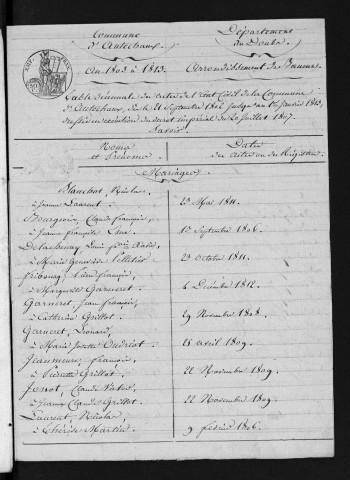 Commune
d'Autechaux.
Département
du Doubs.
An 1803 à 1813.
Arrondissement de Baume.
Table décennale des actes de l'état Civil de la Commune
d'Autechaux, du 21 Septembre 1802 jusqu'au 1er janvier 1813,
en exécution du décret impérial du 20 juillet 1807.
Savoir.
Noms
et Prénoms
Date
des actes ou des Registres.
Mariages
Blanchot, Nicolas
à Jeanne Laurent.
23 Mai 1811.
Bourgeois, Claude françois,
à Jeanne françoise
Septembre 1806.
Louis
à Marie Geneviève Pelletier
23 octobre 1811.
françois,
à Marguerite Garneret.
6 Décembre 1812.
Garneret, Jean françois,
à Catherine Grillot.
29 Novembre 1808.
Garneret, Léonard,
à Marie Josette
18 avril 1809.
françois,
à Pierrette Grillot.
22 Novembre 1809.
Claude
à Jeanne Claude Grillot.
22 Novembre 1809.
Laurent, Nicolas
à Thérèse Martin.
9 février 1806.